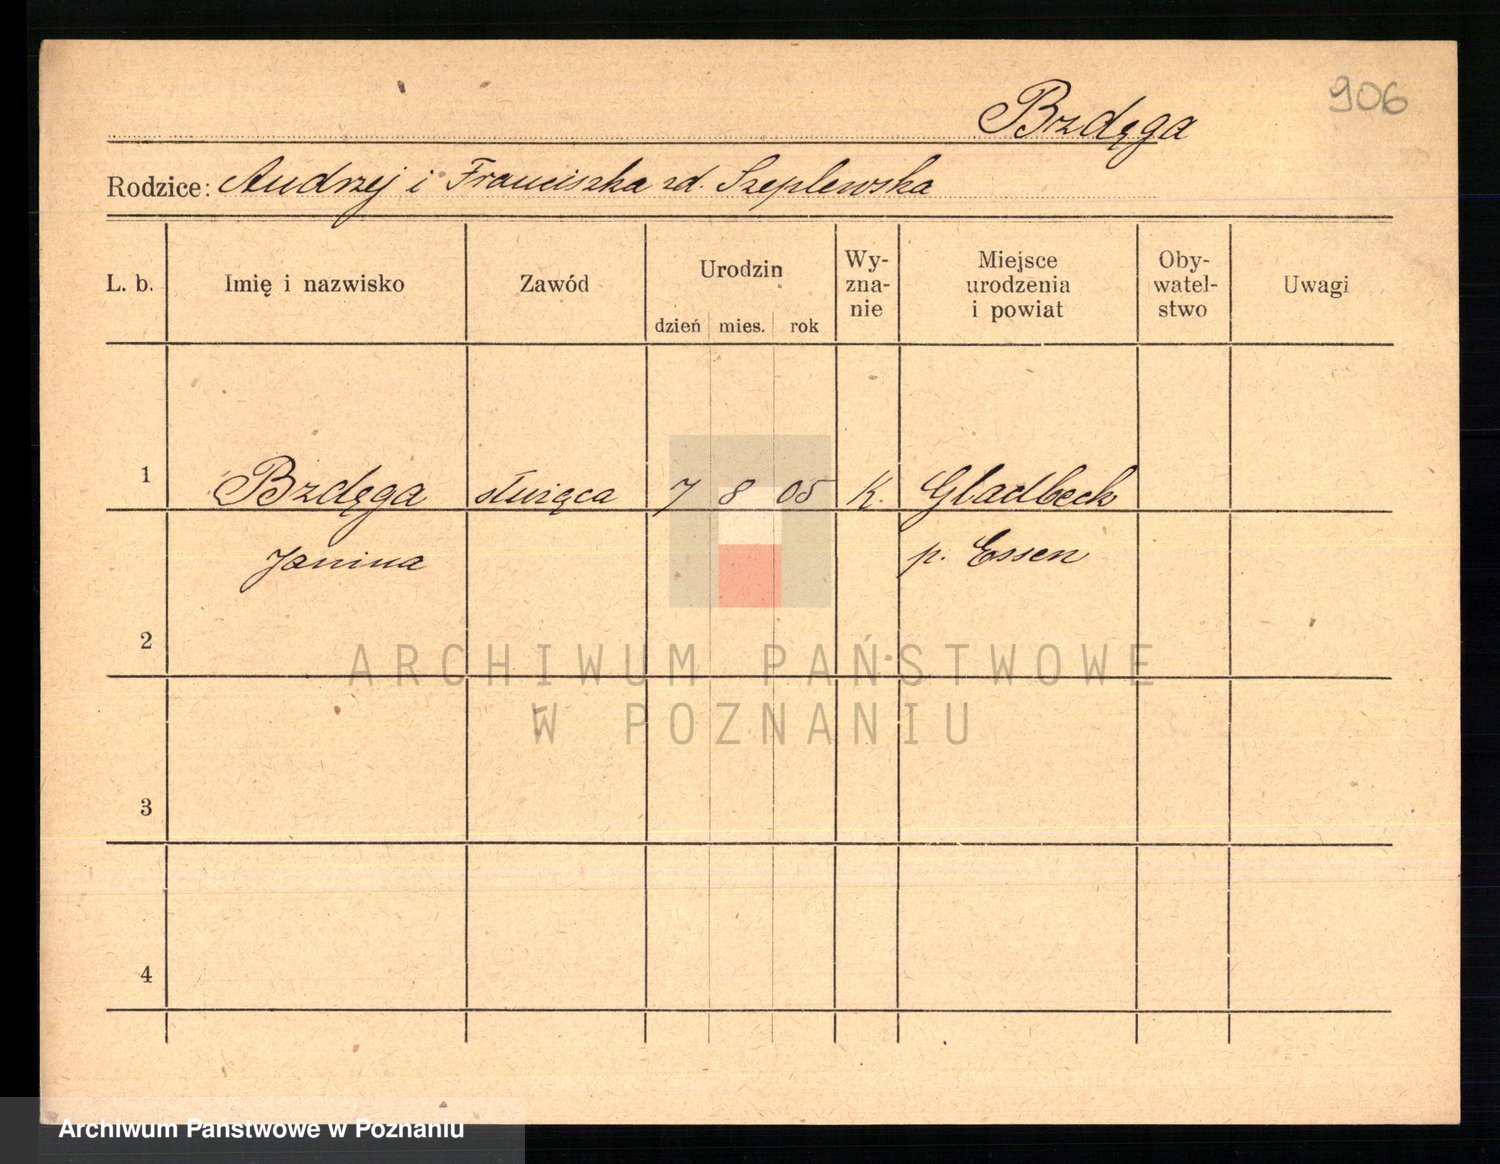 906
Brzdęga
Rodzice: Andrzej i Franciszka zd. Szeplewska
L. b. Imię i nazwisko Zawód Urodzin dzień mies. rok Wy-zna-nie Miejsce urodzenia i powiat Oby-watel-stwo Uwagi
1 Bzdęga służąca 7 8 05 K. Gladbeck
Janina p. Essen
2
ARCHIWUM PAŃSTWOWE
W POZNANIU
3
4
Archiwum Państwowe w Poznaniu